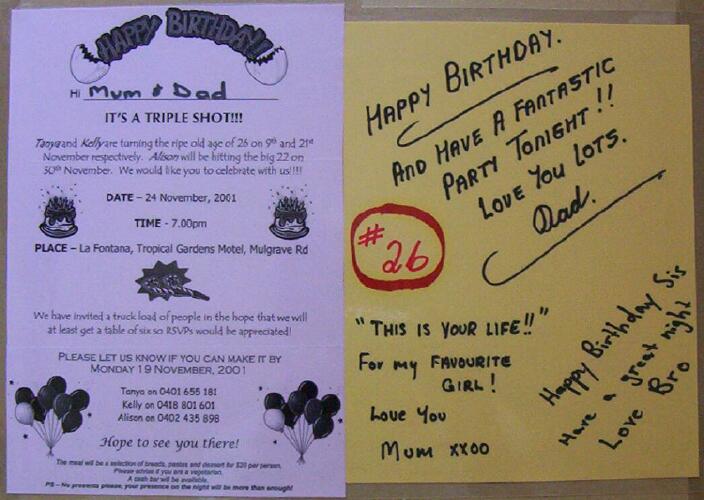 HAPPY BIRTHDAY!!
Hi Mum & Dad
IT'S A TRIPLE SHOT!!!
Tanya and Kelly are turning the ripe old age of 26 on 9th and 21st
November respectively. Alison will be hitting the big 22 on
30th November. We would like you to celebrate with us!!!!
DATE – 24 November, 2001
TIME - 7.00pm
PLACE – La Fontana, Tropical Gardens Motel, Mulgrave Rd
We have invited a truck load of people in the hope that we will
at least get a table of six so RSVPs would be appreciated!
PLEASE LET US KNOW IF YOU CAN MAKE IT BY
MONDAY 19 NOVEMBER, 2001
Tanya on 0401 655 181
Kelly on 0418 801 601
Alison on 0402 435 898
Hope to see you there!
The meal will be a selection of breads, pastas and dessert for $20 per person.
Please advise if you are a vegetarian.
A cash bar will be available.
PS – No presents please, your presence on the night will be more than enough!
HAPPY BIRTHDAY.
AND HAVE A FANTASTIC
PARTY TONIGHT!!
LOVE YOU LOTS.
Dad.
#26
"THIS IS YOUR LIFE!!"
For my FAVOURITE
GIRL!
Love You
Mum xxoo
Happy Birthday Sis
Have a great night
Love Bro